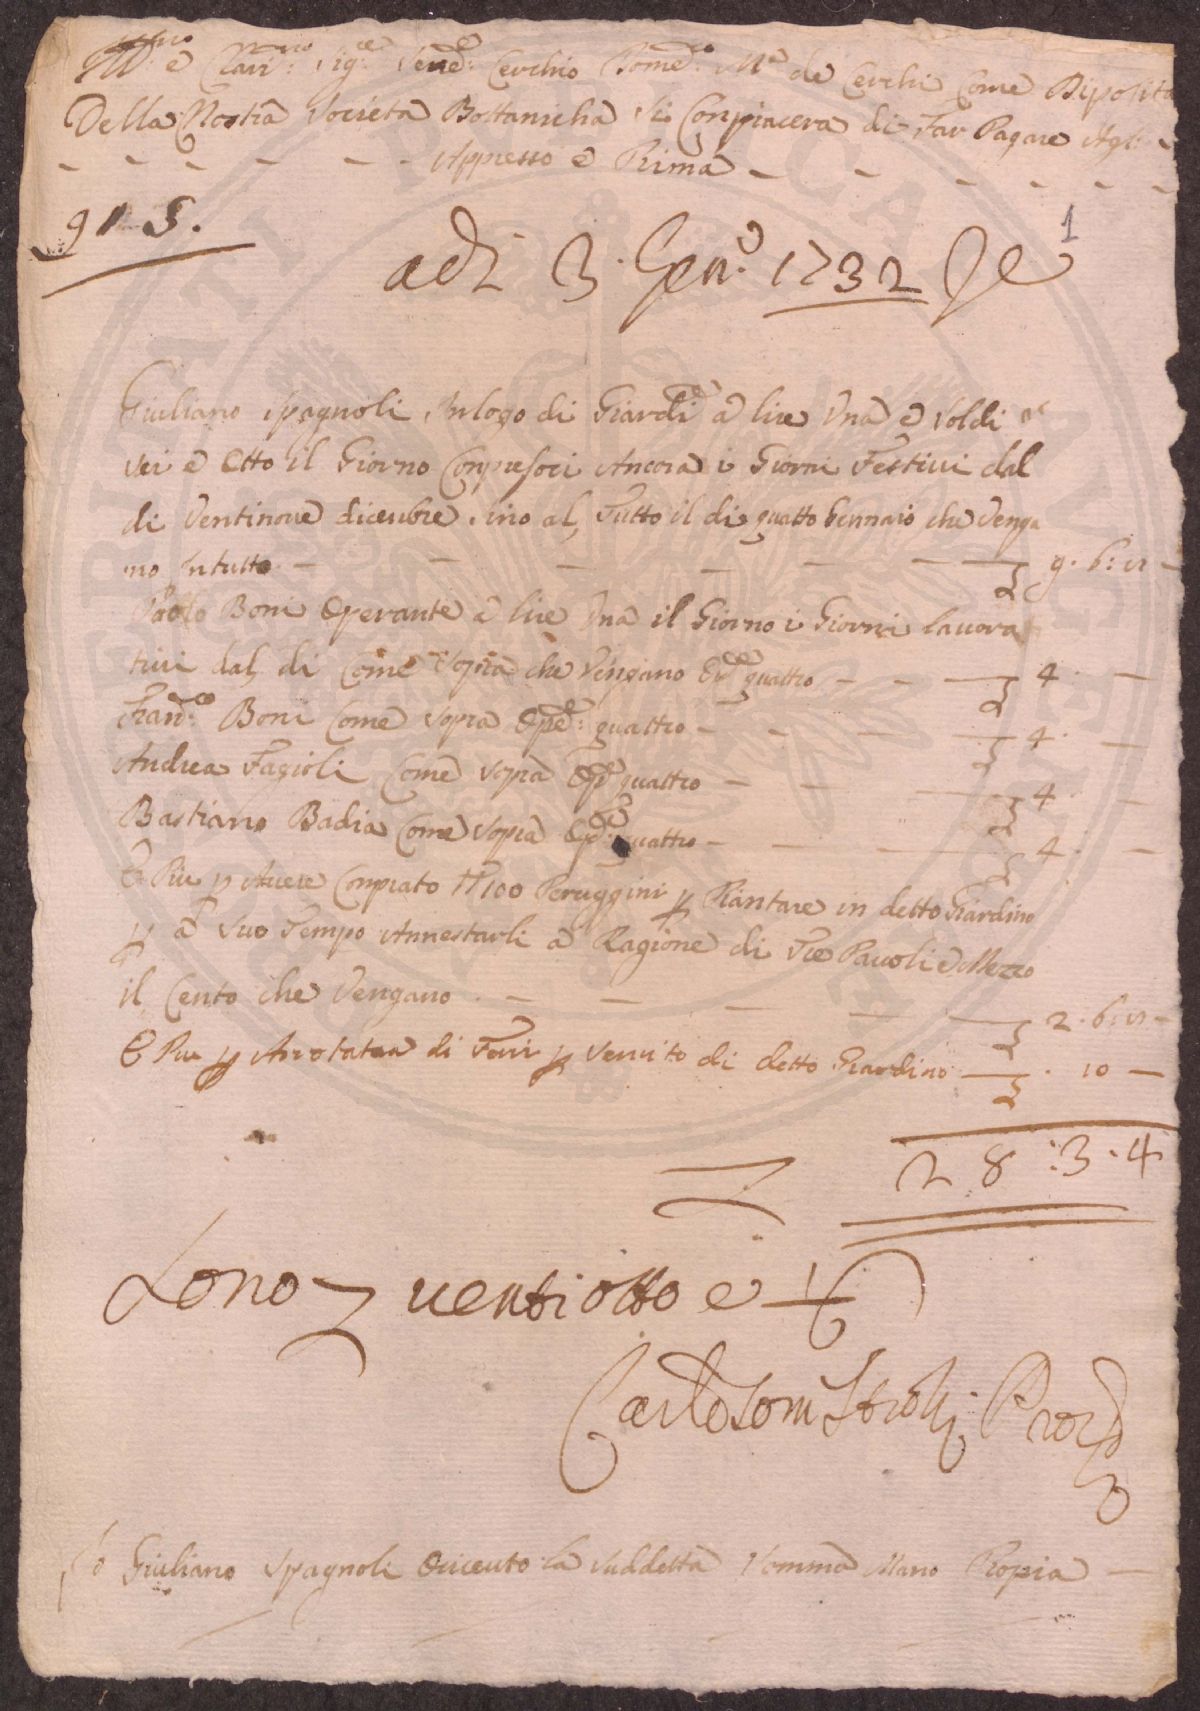 Ill:mo e Clari:mo Sig:re Sened:e Cerchio Dome:co M.a de Cerchi Come Diposita
Della Nostra Società Bottanicha Si Conpiacera di Far Pagare Agl:
Appresso e Prima
91 5.
1
adi 3. Gen:o 1732
Giuliano Spagnoli, In logo di Giardi:e a lire Una e Soldi
sei e Otto il Giorno Conpresoci Ancora i Giorni Festivi dal
di Ventinove dicenbre, sino al, Tutto il di quatto Gennaio che Venga
no in tutto 9. 6: 8
Paolo Boni Operante a lire Una il Giorno i Giorni lavora
tivi dal, di Come Sopra che Vengano quattro 4
Fran:co Boni Come Sopra Ope:e quattro 4
Andrea Fagioli Come Sopra Op:e quattro 4
Bastiano Badia Come Sopra Op:e quattro 4
E Piu p Avere Conprato N 100 Peruggini p Piantare in detto Giardino
p a Suo Tempo Annestarli a Ragione di Tre Pavoli e Mezzo
il, Cento che Vengano 2. 6: 8
E Piu p Arrotatura di Ferri p Servito di detto Giardino 10
28: 3. 4
Sono ventiotto e
Carlo Tom Strozzi Pro:
Io Giuliano Spagnoli O riceuto la Suddetta Somma Mano Propia